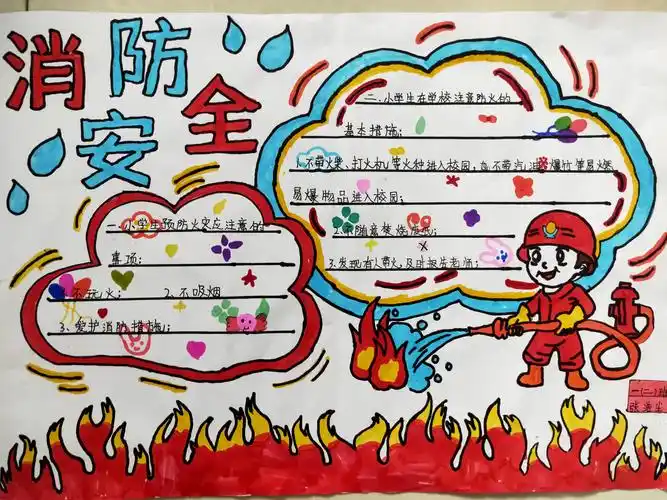 消防安全
一、小学生预防火灾应注意的
事项:
1、不玩火; 2、不吸烟
3、爱护消防措施;
二、小学生在学校注意防火的
基本措施:
1.不带火柴、打火机等火种进入校园,也不带
爆竹等易燃
易爆物品进入校园;
2.不随意焚烧
3.发现有人带火,及时报告老师;
一(二)班
张